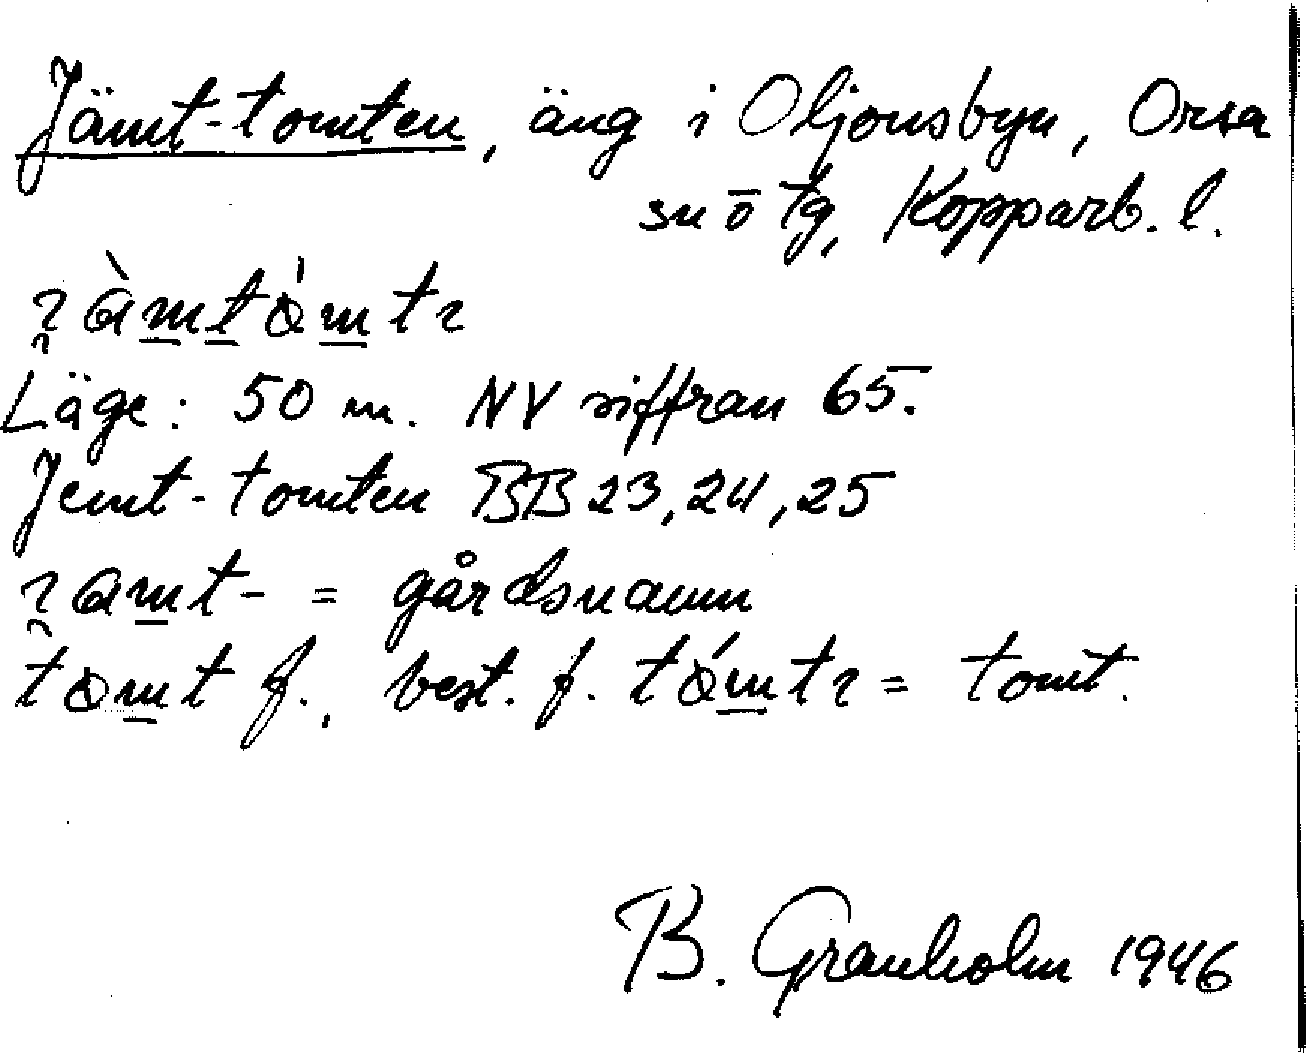 Jämt-tomten, äng i Oljonsbyn, Orsa
sn ō tg, Kopparb. l.
Läge: 50 m. NV siffran 65.
Jemt-tomten BB 23, 24, 25
= gårdsnamn
f., best. f. = tomt.
B. Granholm 1946